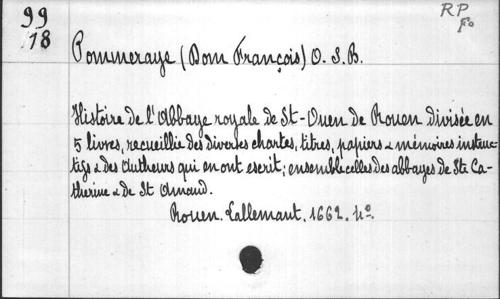 99
18
RP
fo
Pommeraye (Dom François) O. S. B.
Histoire de l'Abbaye royale de St-Ouen de Rouen divisée en
5 livres, recueillie des diverses chartes, titres, papiers & mémoires instruc-
tifs & des Autheurs qui en ont escrit; ensemble celles des abbayes de Ste Ca-
therine & de St Amand.
Rouen. Lallemant. 1662. 4o.